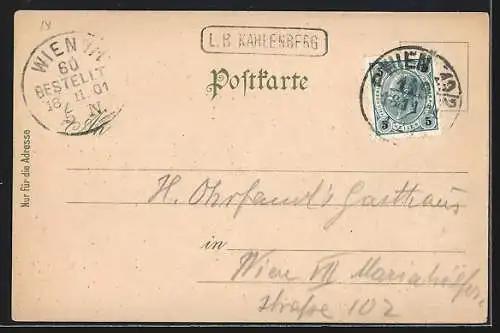 L. B. KAHLENBERG
WIEN
60
BESTELLT
18 II. 01
N.
Postkarte
WIEN 19/2
5 5
Nur für die Adresse
H. Gasthaus
in
Wien VII Mariahilfer-
strasse 102